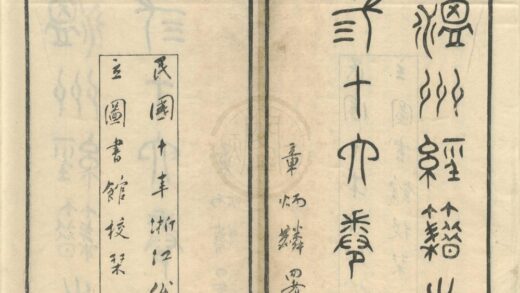 溫州經籍志
弎十六卷
章炳麟署
民國十年浙江公
立圖書館校栞